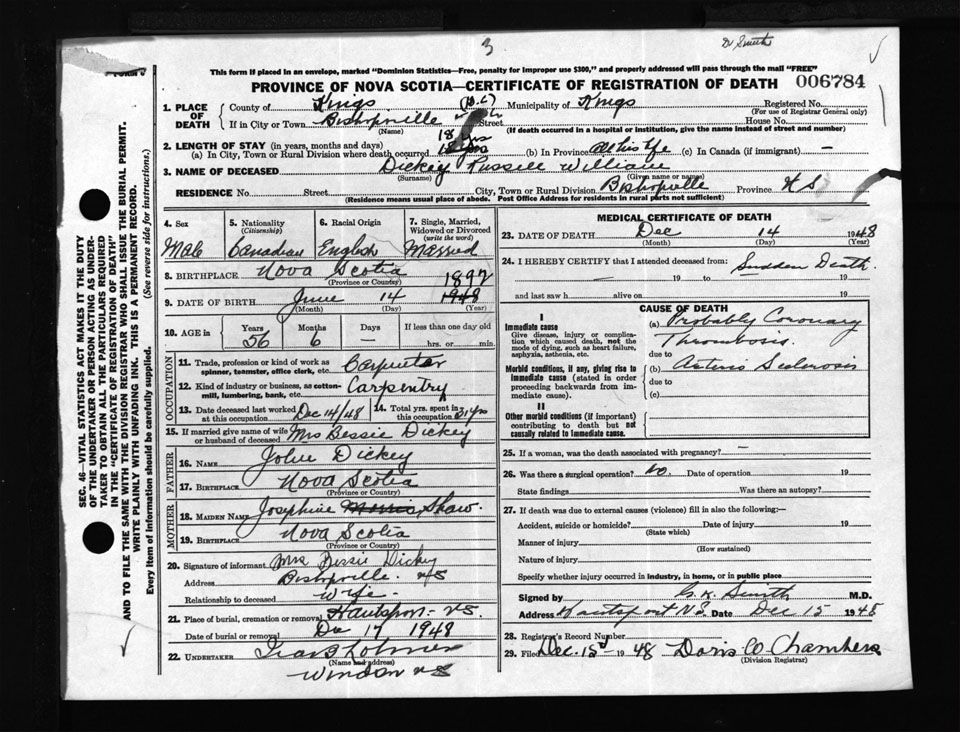 3
Dr Smith
FORM 6
This form if placed in an envelope, marked "Dominion Statistics—Free, penalty for improper use $300," and properly addressed will pass through the mail "FREE"
PROVINCE OF NOVA SCOTIA—CERTIFICATE OF REGISTRATION OF DEATH 006784
1. PLACE OF DEATH County of Kings Municipality of Kings Registered No.
(For use of Registrar General only)
If in City or Town Bishopville Street House No.
(Name) (If death occurred in a hospital or institution, give the name instead of street and number)
18 yrs
2. LENGTH OF STAY (in years, months and days)
(a) In City, Town or Rural Division where death occurred (b) In Province all his life (c) In Canada (if immigrant) —
3. NAME OF DECEASED Dickey Russell William
(Surname) (Given name or names)
RESIDENCE No. Street City, Town or Rural Division Bishopville Province N S
(Residence means usual place of abode. Post Office Address for residents in rural parts not sufficient)
4. Sex Male
5. Nationality (Citizenship) Canadian
6. Racial Origin English
7. Single, Married, Widowed or Divorced (write the word) Married
8. BIRTHPLACE Nova Scotia
(Province or Country)
1892
9. DATE OF BIRTH June 14 1948
(Month) (Day) (Year)
10. AGE in Years 56 Months 6 Days — If less than one day old hrs. or min.
OCCUPATION
11. Trade, profession or kind of work as spinner, teamster, office clerk, etc. Carpenter
12. Kind of industry or business, as cotton-mill, lumbering, bank, etc. Carpentry
13. Date deceased last worked at this occupation Dec 14/48 14. Total yrs. spent in this occupation 31 yrs
15. If married give name of wife or husband of deceased Mrs Bessie Dickey
FATHER
16. NAME John Dickey
17. BIRTHPLACE Nova Scotia
(Province or Country)
MOTHER
18. MAIDEN NAME Josephine Morris Shaw
19. BIRTHPLACE Nova Scotia
(Province or Country)
20. Signature of informant Mrs Bessie Dickey
Address Bishopville. NS
Relationship to deceased Wife -
21. Place of burial, cremation or removal Hantsport - NS.
Date of burial or removal Dec 17 1948
22. UNDERTAKER
(Name and address)
Windsor NS
MEDICAL CERTIFICATE OF DEATH
23. DATE OF DEATH Dec 14 1948
(Month) (Day) (Year)
24. I HEREBY CERTIFY that I attended deceased from: Sudden Death.
19 to 19
and last saw h alive on 19
CAUSE OF DEATH
I
Immediate cause
Give disease, injury or complication which caused death, not the mode of dying, such as heart failure, asphyxia, asthenia, etc.
(a) Probably Coronary
Thrombosis.
due to
Morbid conditions, if any, giving rise to immediate cause (stated in order proceeding backwards from immediate cause).
(b) Arterio Sclerosis
due to
(c)
II
Other morbid conditions (if important) contributing to death but not causally related to immediate cause.
25. If a woman, was the death associated with pregnancy? —
26. Was there a surgical operation? No. Date of operation 19
State findings Was there an autopsy?
27. If death was due to external causes (violence) fill in also the following:—
Accident, suicide or homicide? Date of injury 19
(State which)
Manner of injury
(How sustained)
Nature of injury
Specify whether injury occurred in industry, in home, or in public place
Signed by G. K. Smith M.D.
Address Hantsport N.S. Date Dec 15 1948
28. Registrar's Record Number
29. Filed Dec. 15th 1948 Doris O. Chambers
(Division Registrar)
SEC. 46—VITAL STATISTICS ACT MAKES IT THE DUTY
OF THE UNDERTAKER OR PERSON ACTING AS UNDER-
TAKER TO OBTAIN ALL THE PARTICULARS REQUIRED
IN THE "CERTIFICATE OF REGISTRATION OF DEATH"
AND TO FILE THE SAME WITH THE DIVISION REGISTRAR WHO SHALL ISSUE THE BURIAL PERMIT.
WRITE PLAINLY WITH UNFADING INK. THIS IS A PERMANENT RECORD.
Every item of information should be carefully supplied. (See reverse side for instructions.)